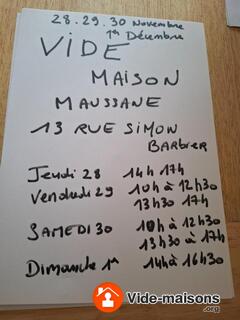 28.29.30 Novembre
1er Décembre
VIDE
MAISON
MAUSSANE
13 RUE SIMON
BARBIER
Jeudi 28 14h 17h
Vendredi 29 10h à 12h30
13h30 17h
SAMEDI 30 10h à 12h30
13h30 à 17h
Dimanche 1er 14h à 16h30
Vide-maisons
.org